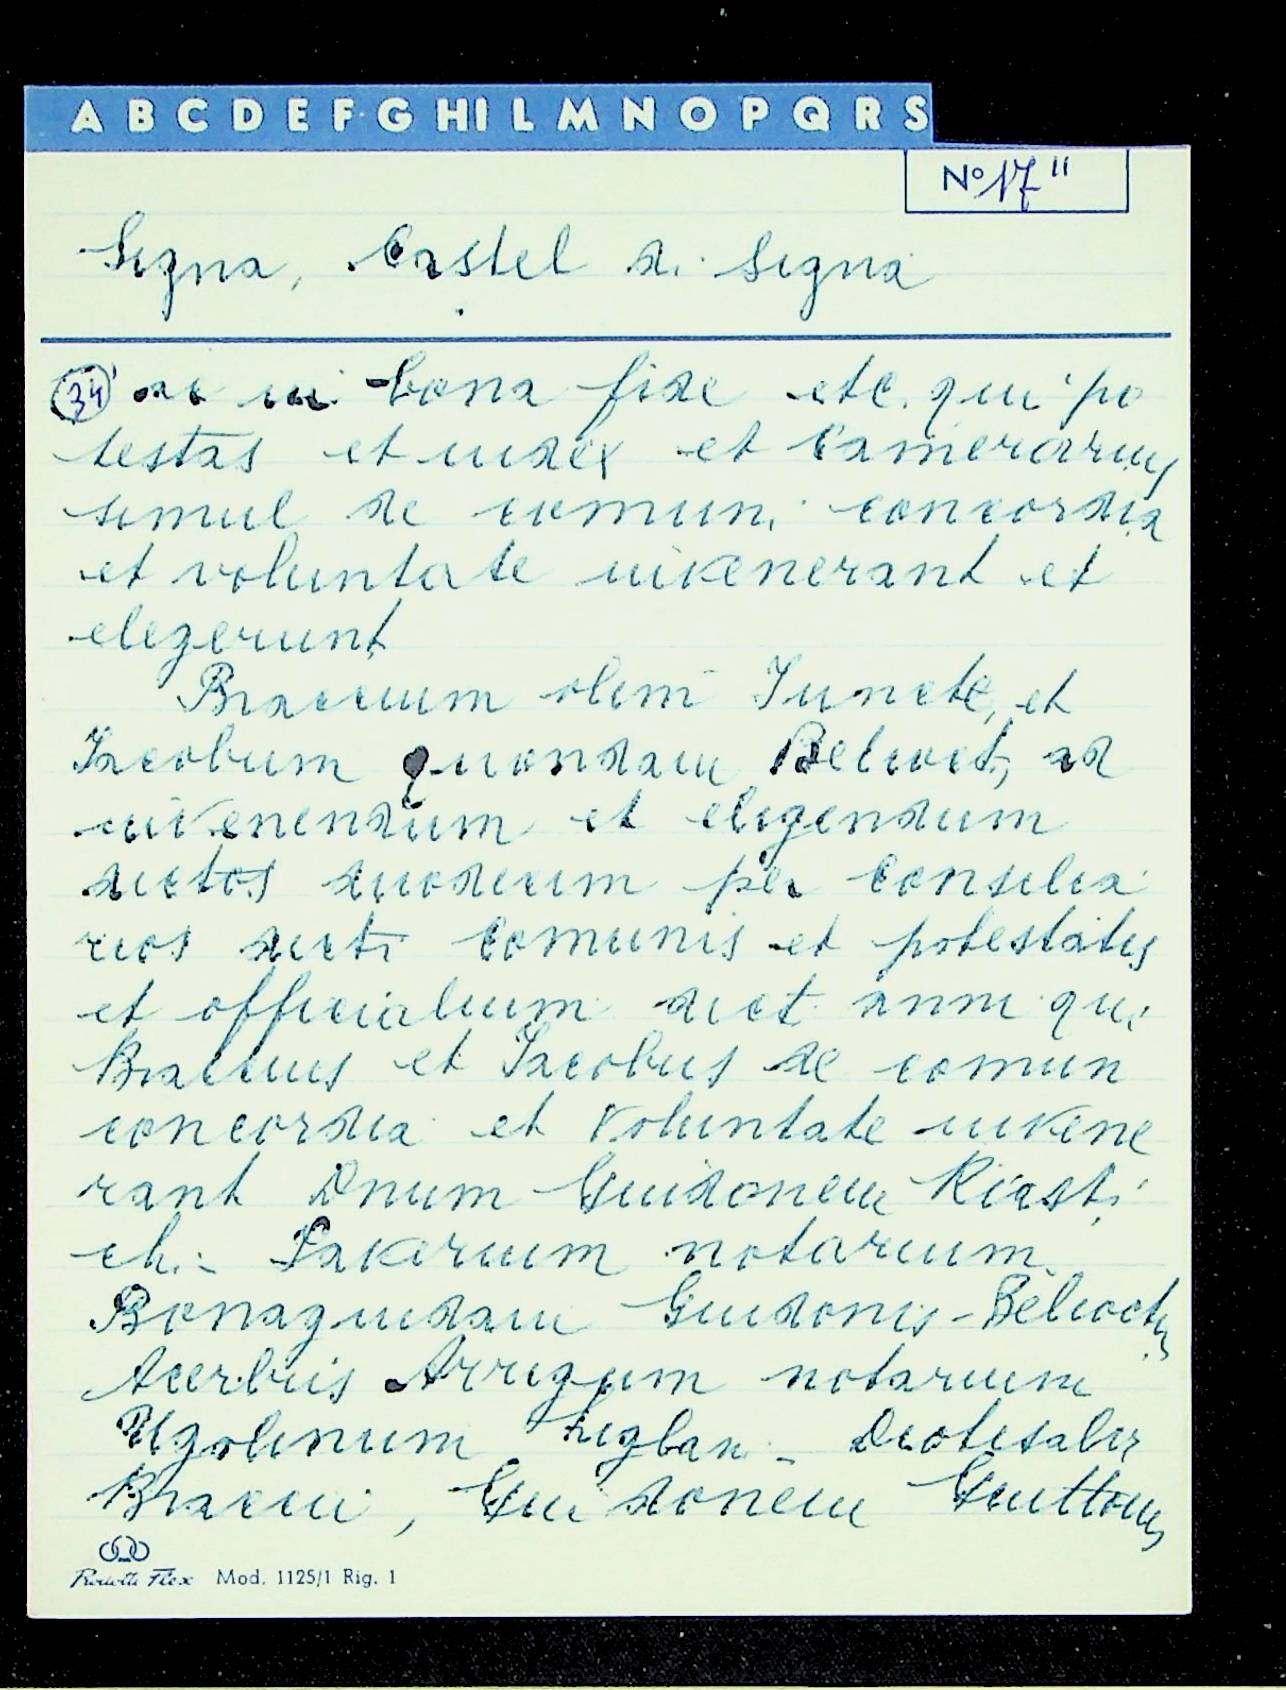 A B C D E F G H I L M N O P Q R S
N° 17"
Signa, Castel di Signa
34 ac in bona fide etc. qui po
testas et iudex et Camerarius
simul de comuni concordia
et voluntate invenerant et
elegerunt
Braccium olim Juncte, et
Jacobum quondam Belioct, ad
invenendum et eligendum
dictos duodecim per consilia
rios dicti Comunis et potestatis
et officialium dict anni qui
Braccius et Jacobus de comun
concordia et voluntate invene
rant Dnum Guidonem
ch. - notarium
Bonaguidam Guidonis - Beliocti
Acerbis Arrigum notarium
Ugolinum - Diotisalvi
Braccii, Guidonem Guittonis
Mod. 1125/1 Rig. 1